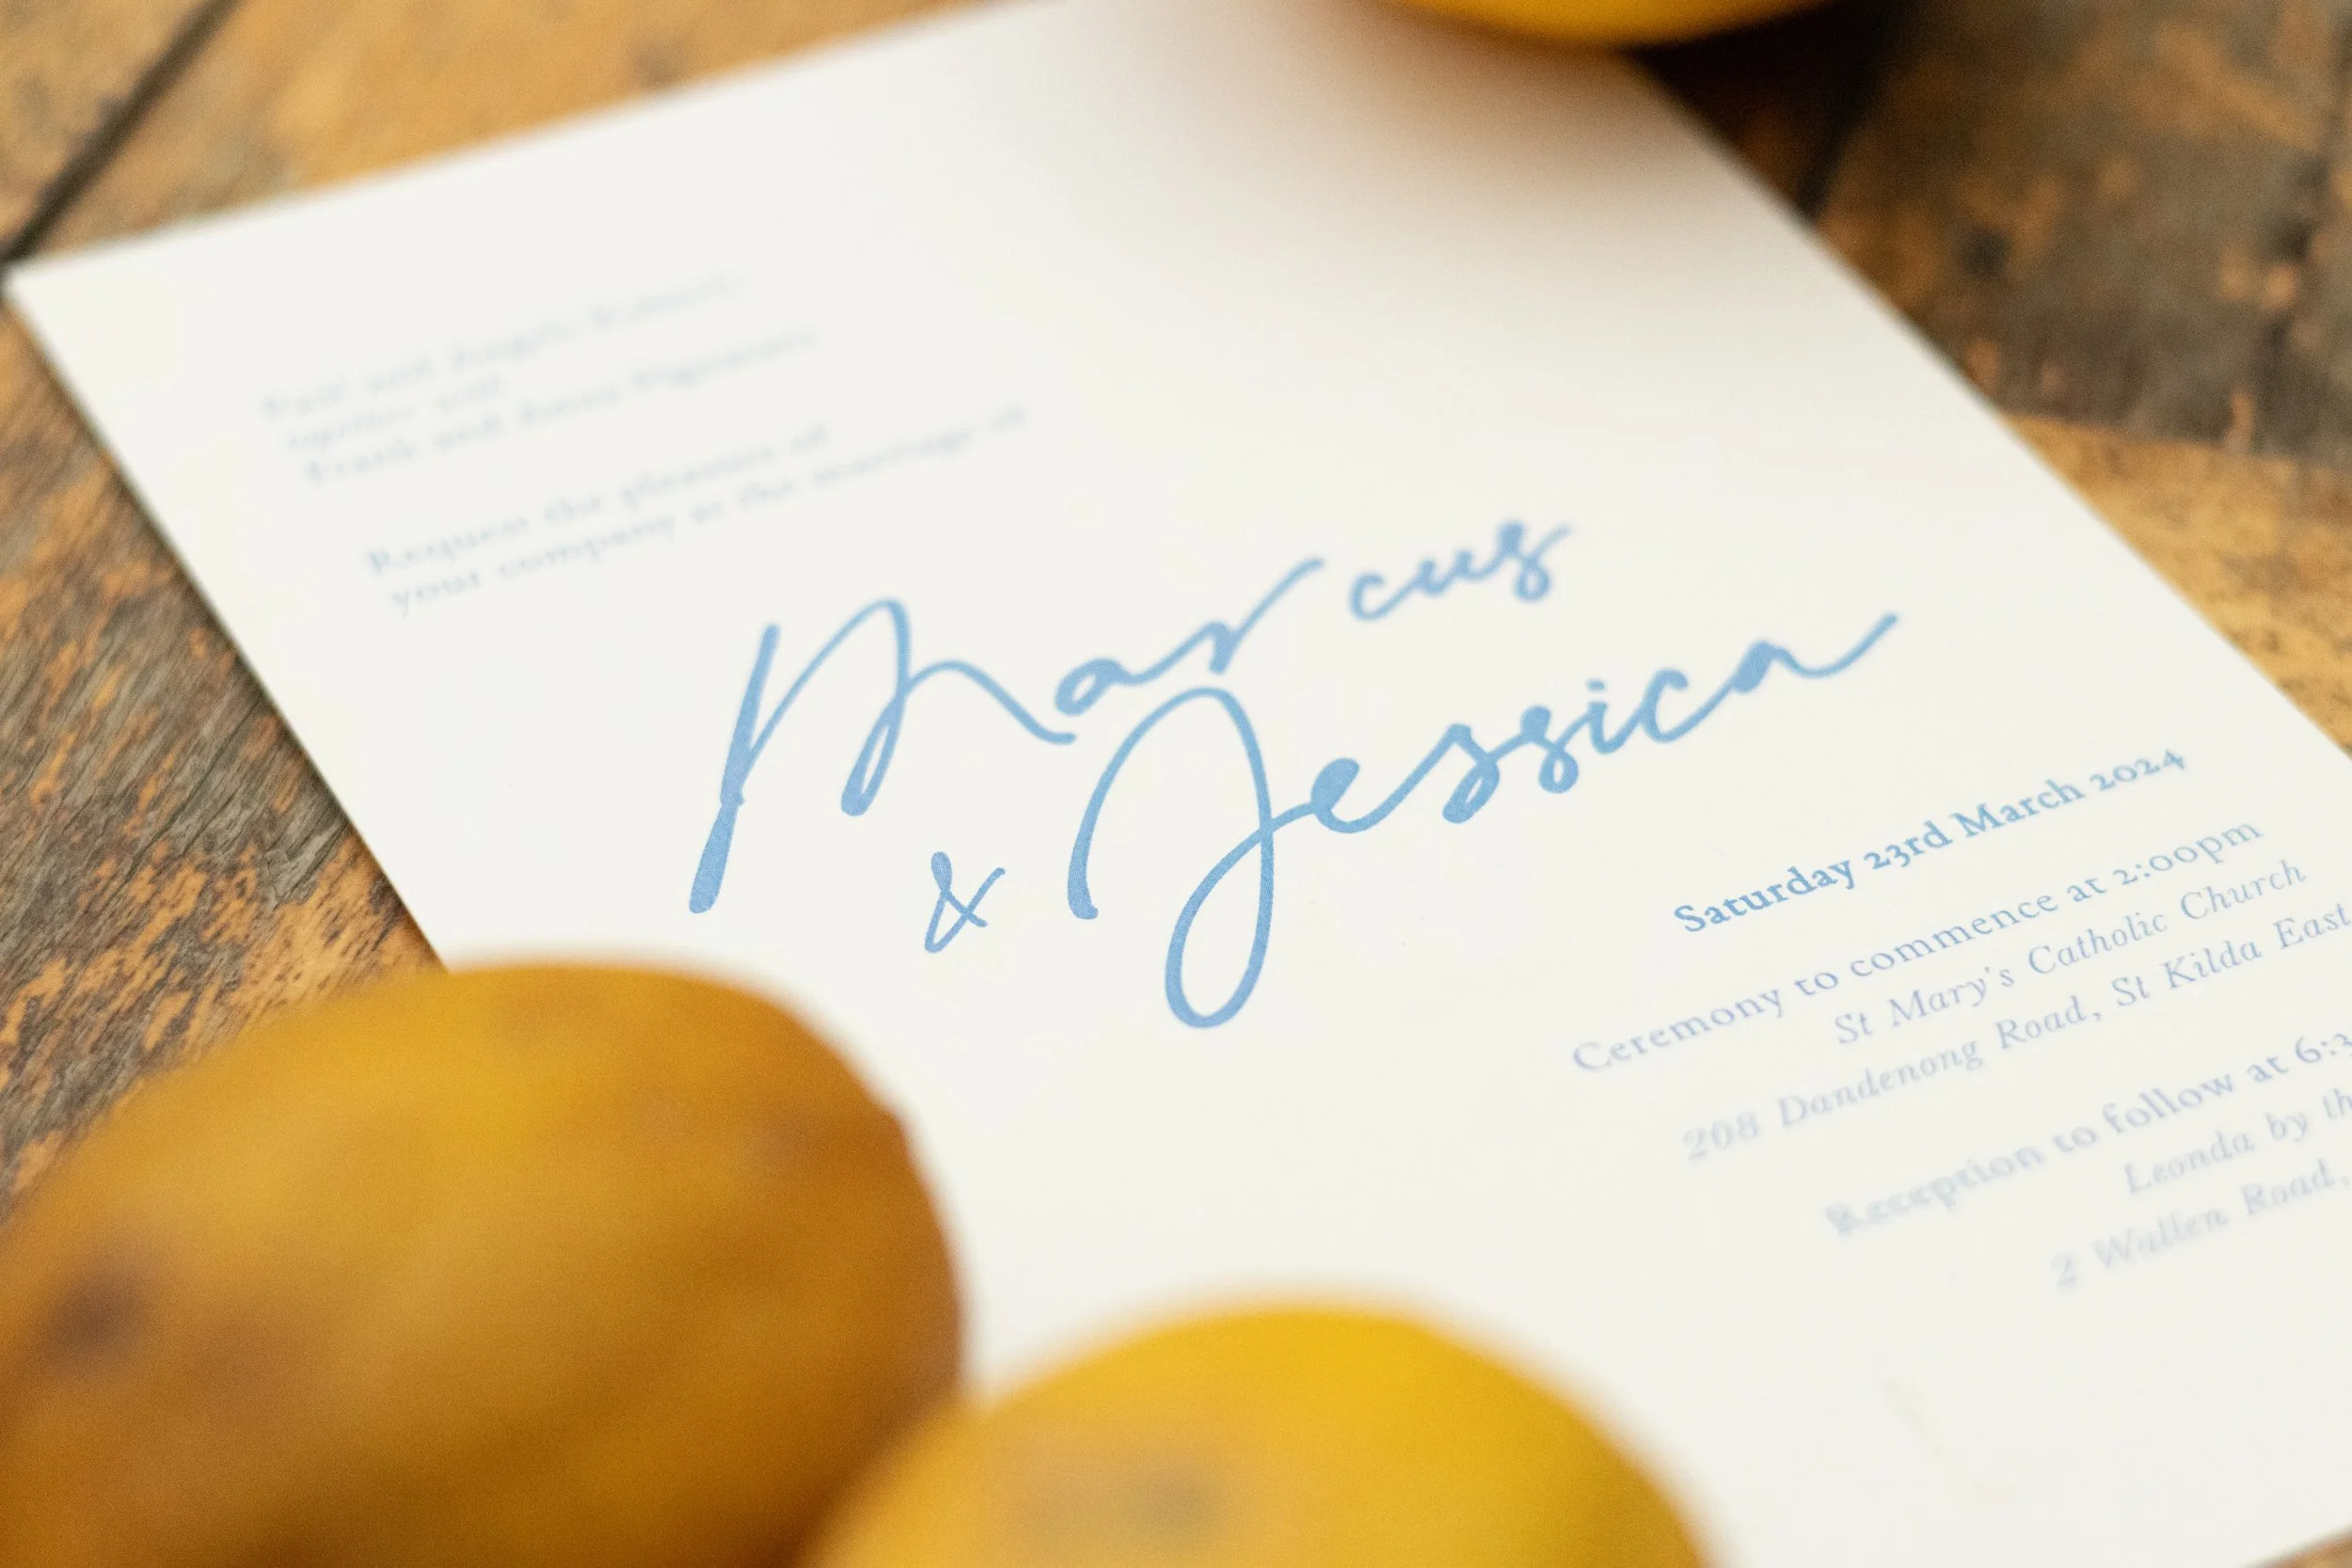 Paul and Angela
together with
Frank and Anna
Request the pleasure of
your company at the marriage of
Marcus
& Jessica
Saturday 23rd March 2024
Ceremony to commence at 2:00pm
St Mary's Catholic Church
208 Dandenong Road, St Kilda East
Reception to follow at 6:3
Leonda by th
2 Wallen Road,